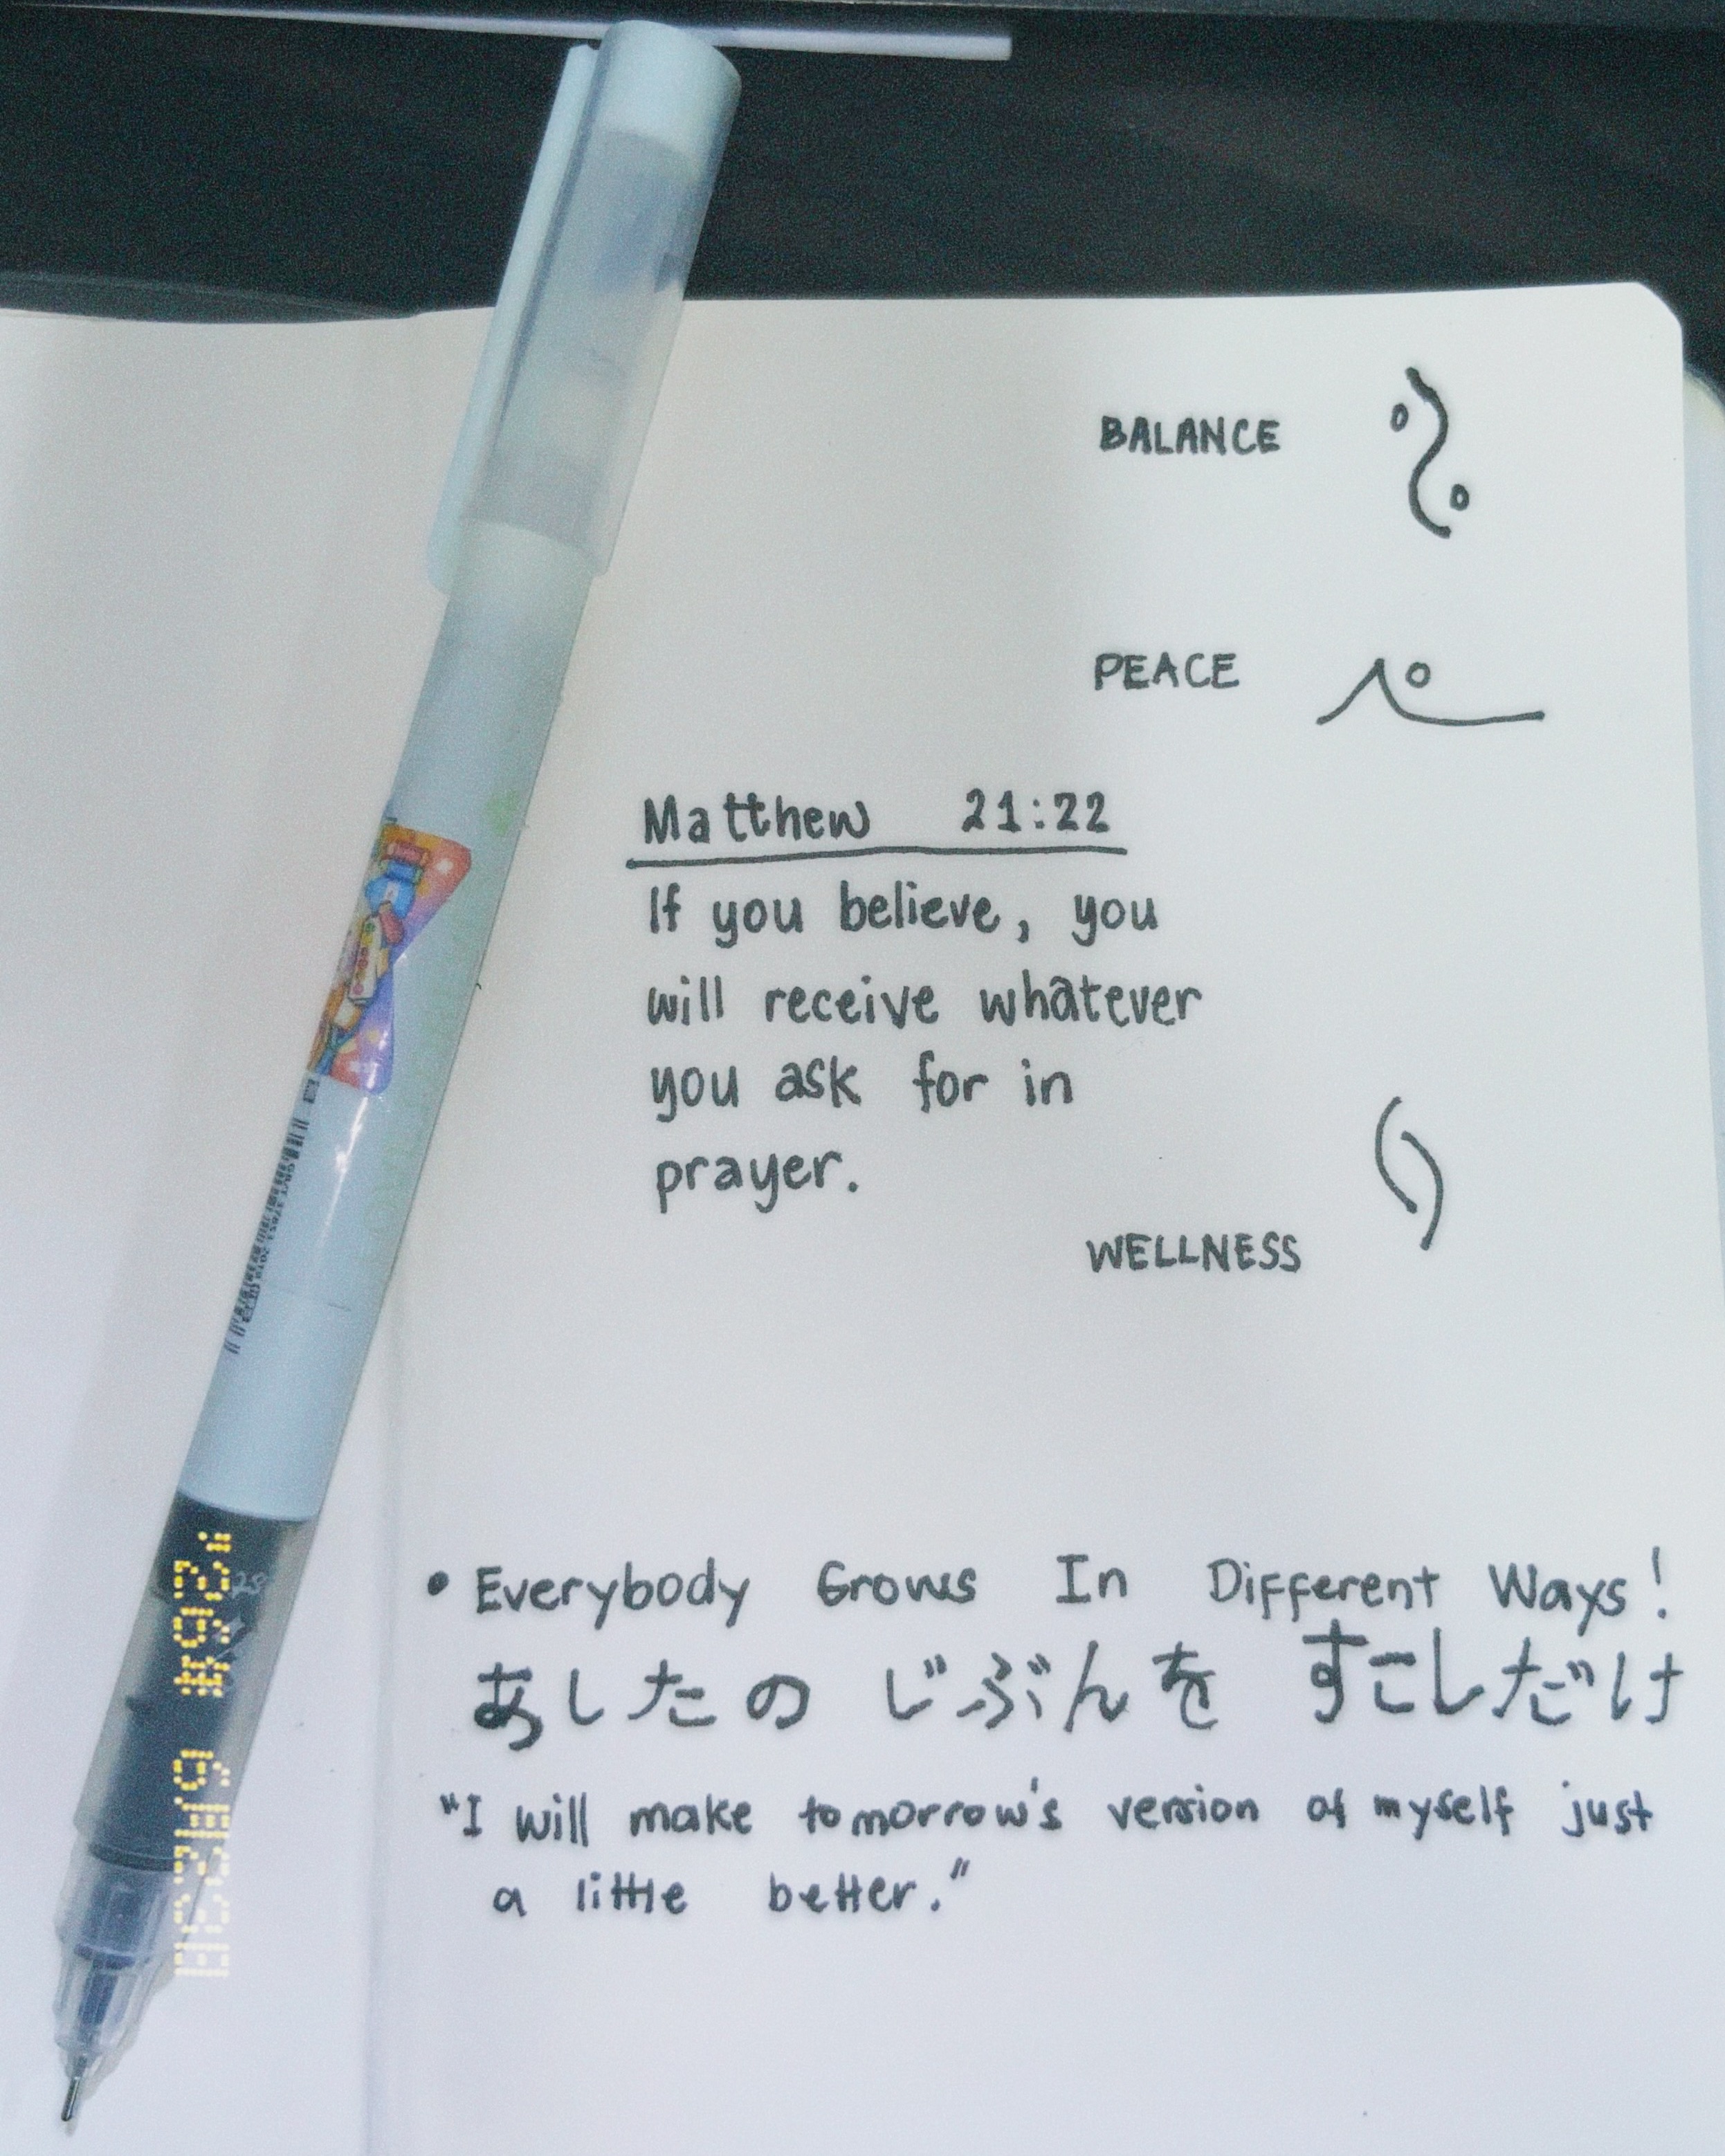 BALANCE
PEACE
Matthew 21:22
If you believe, you
will receive whatever
you ask for in
prayer.
WELLNESS
• Everybody Grows In Different Ways!
あしたの じぶんを すこしだけ
"I will make tomorrow's version of myself just
a little better."